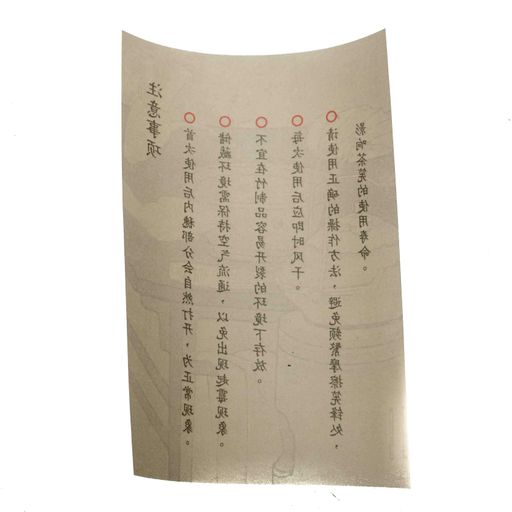 注意事项
○首次使用后内穗部分会自然打开，为正常现象。
○储藏环境需保持空气流通，以免出现起霉现象。
○不宜在竹制品容易开裂的环境下存放。
○每次使用后应即时风干。
○请使用正确的操作方法，避免频繁摩擦筅锋处，
影响茶筅的使用寿命。